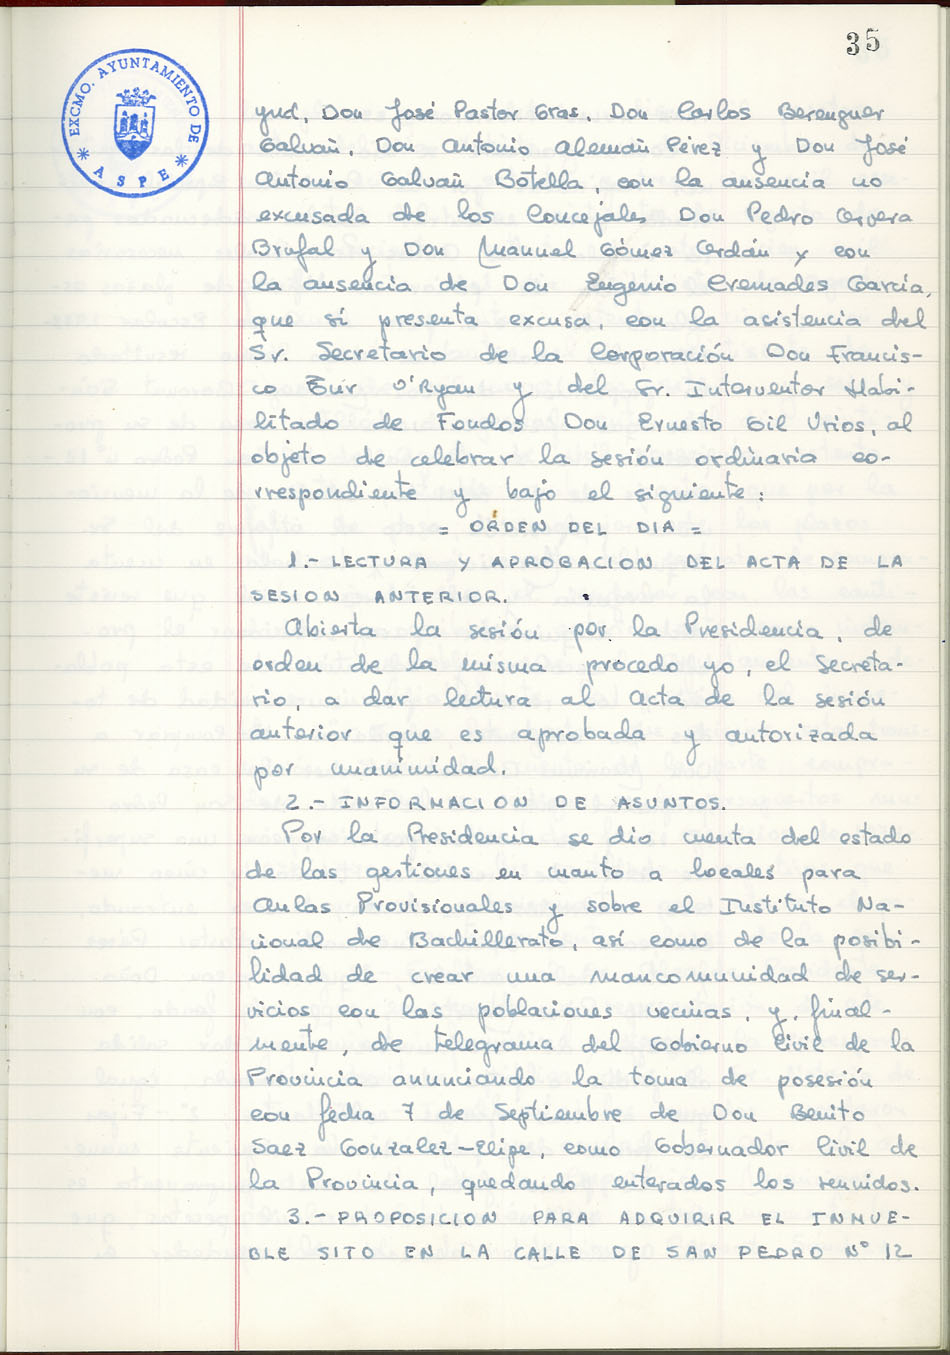 35
EXCMO. AYUNTAMIENTO DE
* ASPE *
yud, Don José Pastor Gras, Don Carlos Berenguer
Galvañ, Don Antonio Alemañ Pérez y Don José
Antonio Galvañ Botella, con la ausencia no
excusada de los Concejales Don Pedro Cervera
Brufal y Don Manuel Gómez Cerdán y con
la ausencia de Don Eugenio Cremades García,
que sí presenta excusa, con la asistencia del
Sr. Secretario de la Corporación Don Francis-
co Zur O'Ryan y del Sr. Interventor Habi-
litado de Fondos Don Ernesto Gil Urios, al
objeto de celebrar la sesión ordinaria co-
rrespondiente y bajo el siguiente:
= ORDEN DEL DIA =
1.- LECTURA Y APROBACION DEL ACTA DE LA
SESION ANTERIOR.
Abierta la sesión por la Presidencia, de
orden de la misma procedo yo, el Secreta-
rio, a dar lectura al acta de la sesión
anterior que es aprobada y autorizada
por unanimidad.
2.- INFORMACION DE ASUNTOS.
Por la Presidencia se dio cuenta del estado
de las gestiones en cuanto a locales para
Aulas Provisionales y sobre el Instituto Na-
cional de Bachillerato, así como de la posibi-
lidad de crear una mancomunidad de ser-
vicios con las poblaciones vecinas, y, final-
mente, de telegrama del Gobierno Civil de la
Provincia anunciando la toma de posesión
con fecha 7 de Septiembre de Don Benito
Saez Gonzalez-Elipe, como Gobernador Civil de
la Provincia, quedando enterados los reunidos.
3.- PROPOSICION PARA ADQUIRIR EL INMUE-
BLE SITO EN LA CALLE DE SAN PEDRO Nº 12